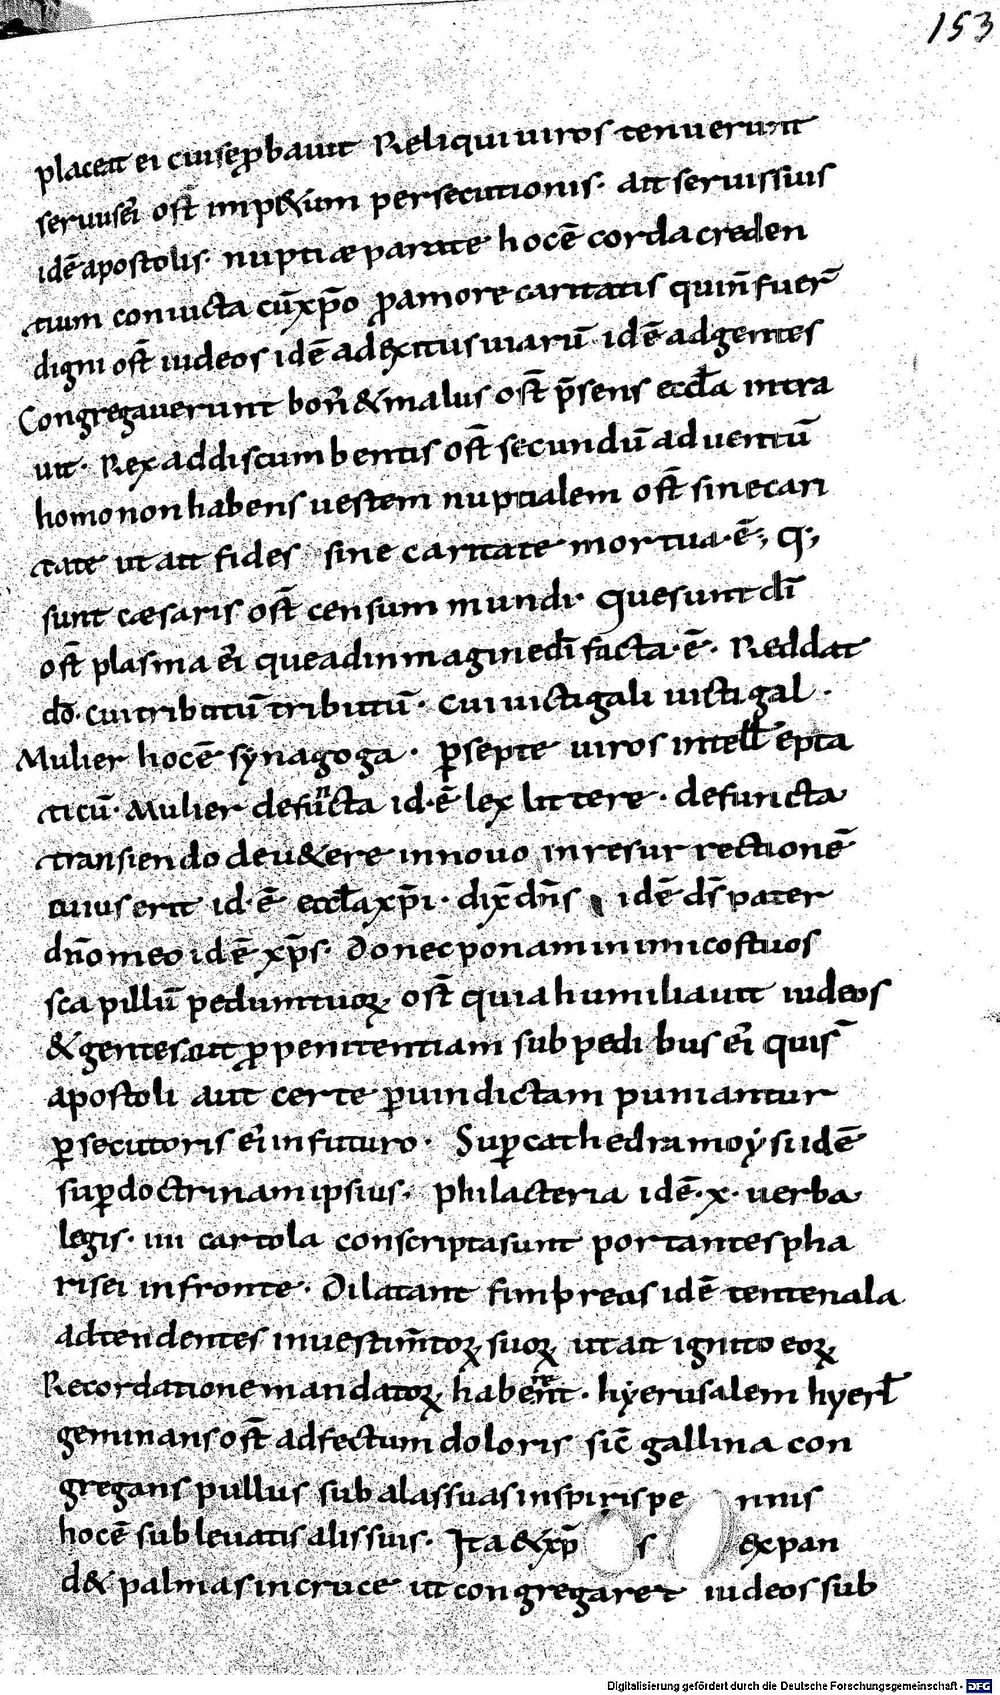 153
placeat ei cui se ꝓbauit Reliqui uiros tenuerunt
seruus ei ost̄ imp&um persecutionis· ait seruis suis
idē apostolis· nuptiæ parate hoc ē corda creden
tium conuicta cū xp̄o ꝓ amore caritatis qui n̄ fuer̄
digni ost̄ iudeos id ē ad exitus uiarū id ē ad gentes
Congregauerunt bon̄ & malus ost̄ p̄sens eccl̄a intra
uit· Rex ad discumbentis ost̄ secundū aduentū
homo non habens uestem nuptialem ost̄ sine cari
tate ut ait fides sine caritate mortua·ē·; q·;
sunt cæsaris ost̄ censum mundi· que sunt dī
ost̄ plasma ei que ad inmagine dī facta·ē· Reddat
dō· cui tributū tributū· cui uictigali uictigal·
Mulier hoc ē synagoga· ꝑ septe uiros intell̄ epta
ticū· mulier defūcta id·ē lex littere· defuncta
transiendo de u&ere in nouo in resurrectionē
cuius erit id·ē eccl̄a xp̄i· dix̄ dn̄s idē ds̄ pater
dn̄o meo id ē xp̄s· Donec ponam inimicos tuos
scapillū pedum tuoꝝ ost̄ quia humiliauit iudeos
& gentes aut ꝓ penitentiam sub pedibus ei quis̄
apostoli aut certe ꝑ uindictam puniantur
ꝑsecutoris ei in futuro· Suꝑ cathedra moẏsi id ē
suꝑ doctrinam ipsius· philacteria id ē·x· uerba
legis· in cartola conscripta sunt portantes pha
risei in fronte· Dilatant fimbreas id ē tentenala
adtendentes in uestim̄toꝝ suoꝝ ut ait ignito eoꝝ
Recordatione mandatoꝝ habent· hẏerusalem hẏerl̄
geminans ost̄ adfectum doloris sic̄ gallina con
gregans pullus sub alas suas inspiris pe nnis
hoc ē sub leuatis alis suis· Ita & xp̄ s expan
d& palmas in cruce ut congregaret iudeos sub
Digitalisierung gefördert durch die Deutsche Forschungsgemeinschaft - DFG